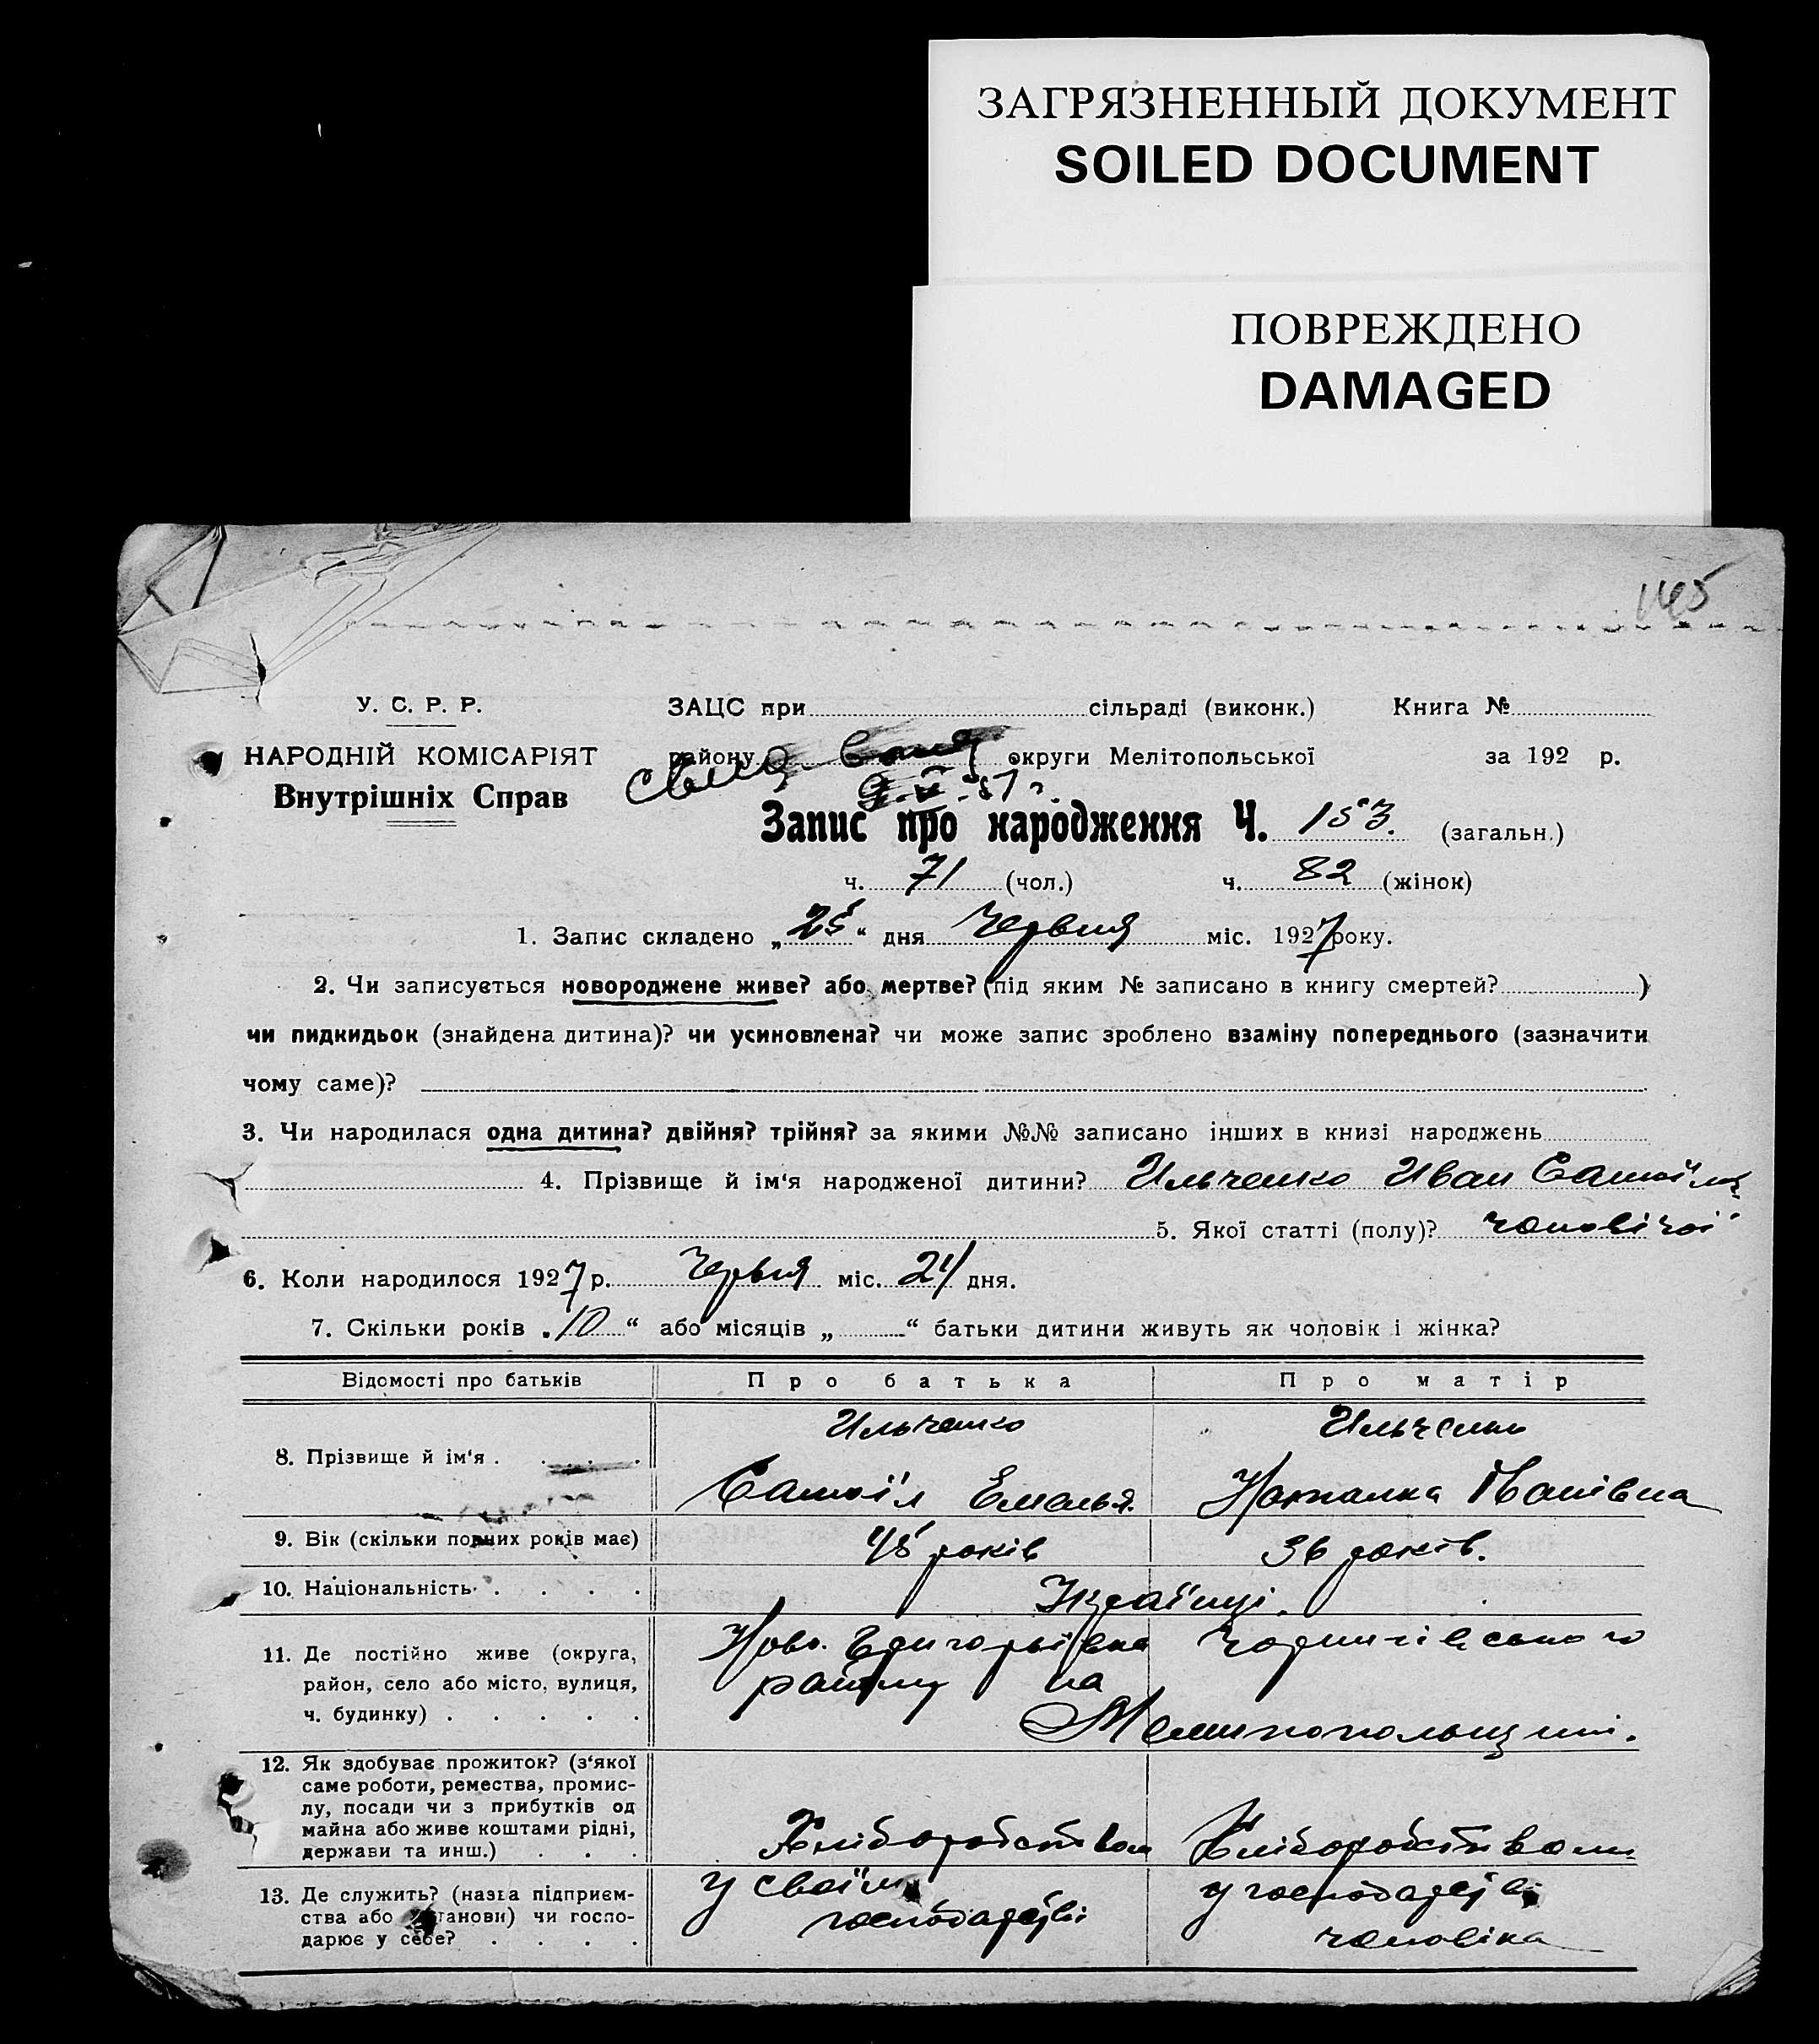 ЗАГРЯЗНЕННЫЙ ДОКУМЕНТ
SOILED DOCUMENT
ПОВРЕЖДЕНО
DAMAGED
145
У. С. Р. Р.
НАРОДНІЙ КОМІСАРІЯТ
Внутрішніх Справ
ЗАЦС при сільраді (виконк.) Книга №
району округи Мелітопольської за 192 р.
Запис про народження Ч. 153. (загальн.)
ч. 71 (чол.) ч. 82 (жінок)
1. Запис складено „25“ дня Червня міс. 1927 року.
2. Чи записується новороджене живе? або мертве? (під яким № записано в книгу смертей? )
чи пидкидьок (знайдена дитина)? чи усиновлена? чи може запис зроблено взаміну попереднього (зазначити
чому саме)?
3. Чи народилася одна дитина? двійня? трійня? за якими №№ записано інших в книзі народжень
4. Прізвище й ім‘я народженої дитини? Ильченко Иван
5. Якої статті (полу)? чоловічої
6. Коли народилося 1927 р. Червня міс. 24 дня.
7. Скільки років „10“ або місяців „ “ батьки дитини живуть як чоловік і жінка?
Відомості про батьків Про батька Про матір
8. Прізвище й ім‘я . . . . .
Ильченко
Самоїл Емелья.
Ильченко
Наталка Іванівна
9. Вік (скільки повних років має) 45 років 36 років.
10. Національність . . . . Українці.
11. Де постійно живе (округа,
район, село або місто, вулиця,
ч. будинку) . . . . .
Ново. Григорьівка
району на
Мелитопольщині.
12. Як здобуває прожиток? (з‘якої
саме роботи, ремества, промис-
лу, посади чи з прибутків од
майна або живе коштами рідні,
держави та инш.) . . .
Хліборобством
Хліборобством
13. Де служить? (назва підприєм-
ства або установи) чи госпо-
дарює у себе? . . . .
у своїм
господарстві
у господарстві
чоловіка